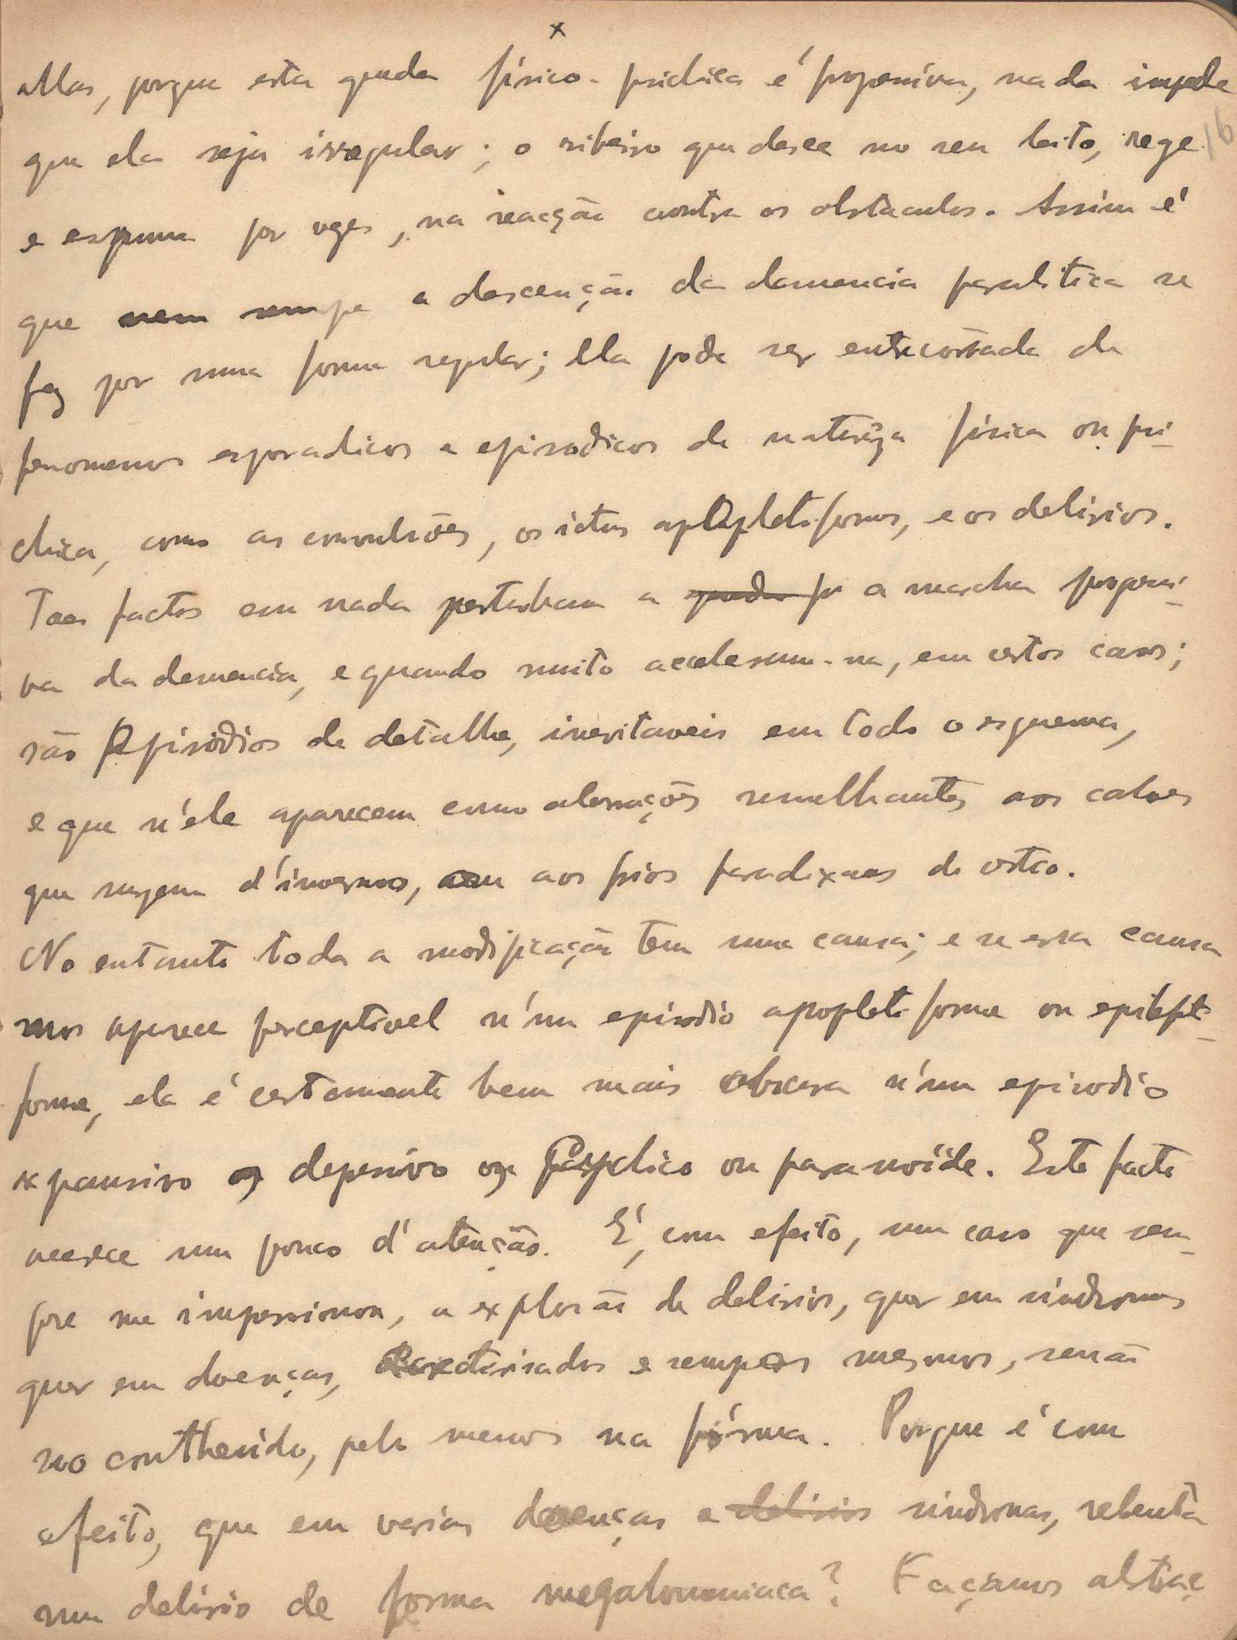 x
Mas, porque esta queda físico-psichica é progressiva, nada impede
16
que ela seja irregular; o ribeiro que desce no seu leito, rege
e espuma por vezes, na reacção contra os obstaculos. Assim é
que nem sempre a descenção da demencia paralitica se
fez por uma forma regular; ella pode ser entrecortada de
fenomenos esporadicos e episodicos de natureza física ou psi-
chica, como as convulsões, os ictus apopletiformes, e os delirios.
Taes factos em nada perturbam a queda pr a marcha progressi-
va da demencia, e quando muito aceleram-na, em certos casos;
são episodios de detalhe, inevitaveis em todo o esquema,
e que n'ele aparecem como aberrações semelhantes aos calores
que surgem d'inverno, ou aos frios paradoxaes do estio.
No entanto toda a modificação tem uma causa; e se essa causa
nos aparece perceptivel n'um episodio apopletiforme ou epilepti-
forme, ela é certamente bem mais obscura n'um episodio
expansivo ou depressivo ou psychico ou paranoíde. Este facto
merece um pouco d'atenção. É, com efeito, um caso que sem-
pre me impressionou, a explosão de delirios, quer em sindromas
quer em doenças, caracterisados e sempre os mesmos, senão
no conthenido, pelo menos na fórma. Porque é com
efeito, que em varias doenças e delirios sindromas, rebenta
um delirio de forma megalomaniaca? Façamos abstraç